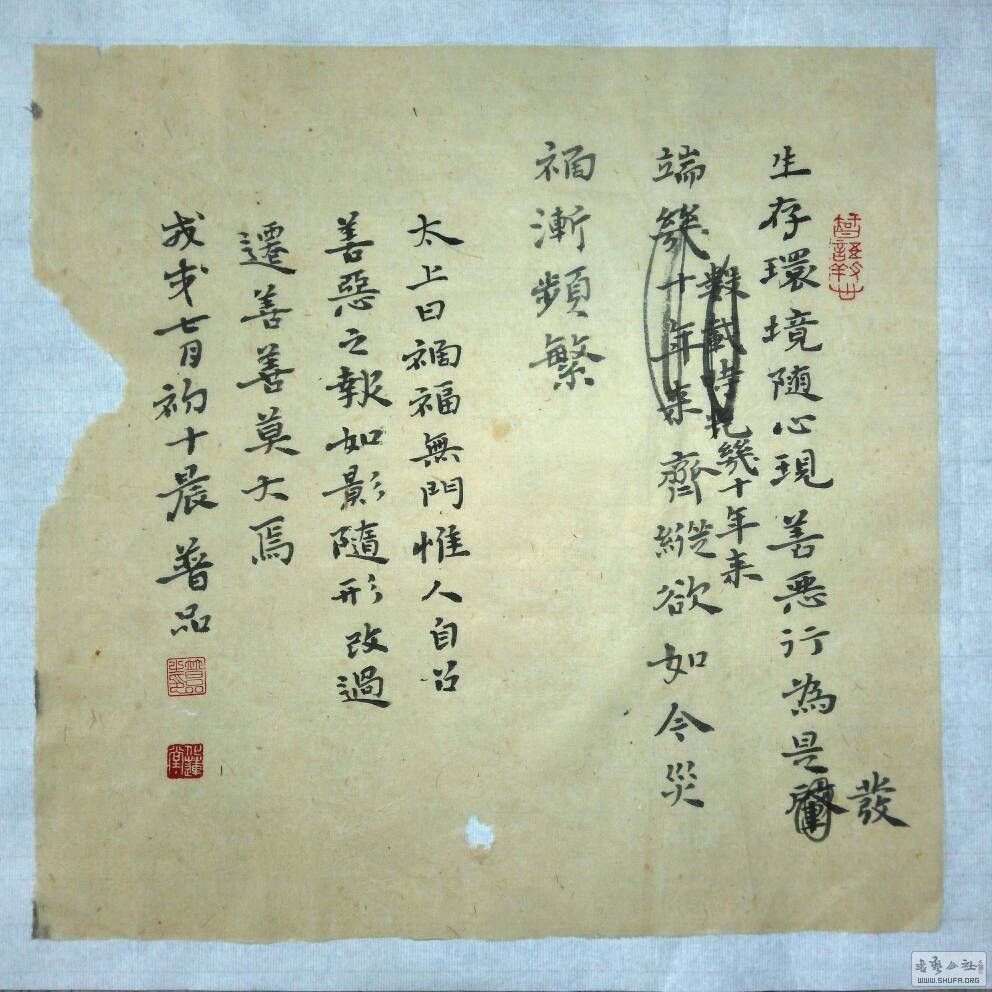 生存環境随心現善惡行為是
發
數載時光幾十年来
端幾十年来齊縱欲如今災
禍漸頻繁
太上曰禍福無門惟人自召
善惡之報如影隨形改過
遷善善莫大焉
戊戌七月初十晨普品
书艺公社
WWW.SHUFA.ORG